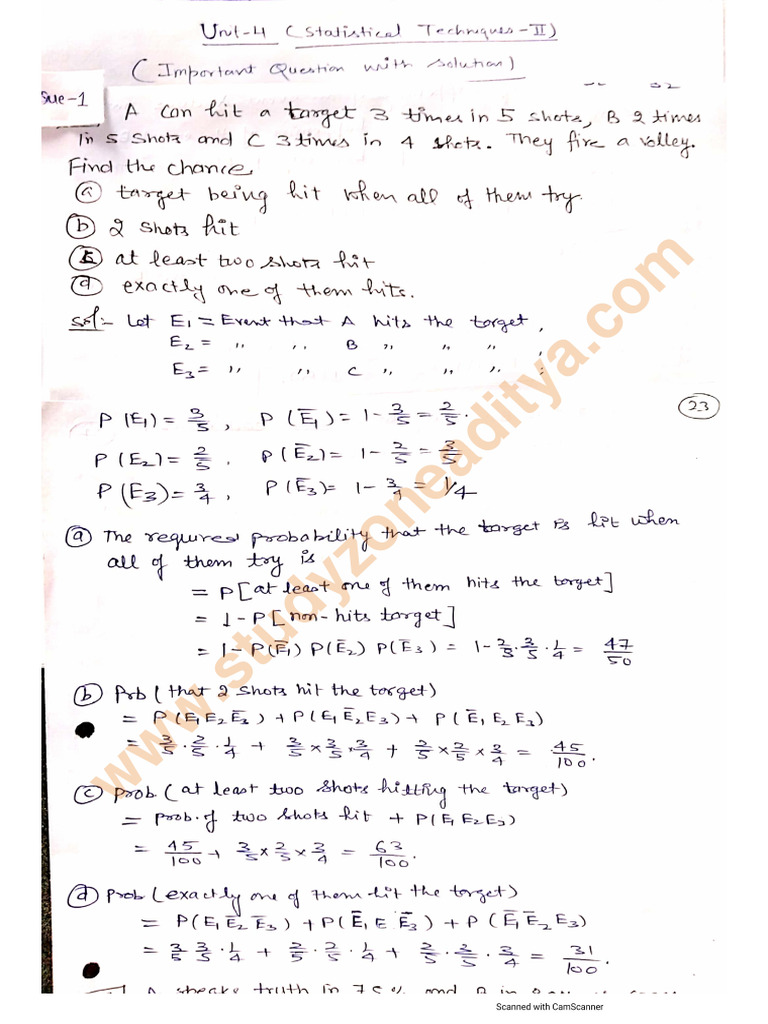 Unit-4 (Statistical Techniques-II)
(Important Question with solution)
Que-1
A can hit a target 3 times in 5 shots, B 2 times
in 5 shots and C 3 times in 4 shots. They fire a volley.
Find the chance
(a) target being hit when all of them try.
(b) 2 shots hit
(c) at least two shots hit
(d) exactly one of them hits.
Sol:- Let E₁ = Event that A hits the target,
E₂ = ,, ,, B ,, ,, ,, ;
E₃ = ,, ,, C ,, ,, ,, ;
23
P(E₁) = 3/5, P(Ē₁) = 1 - 3/5 = 2/5.
P(E₂) = 2/5, P(Ē₂) = 1 - 2/5 = 3/5
P(E₃) = 3/4, P(Ē₃) = 1 - 3/4 = 1/4
(a) The required probability that the target is hit when
all of them try is
= P[at least one of them hits the target]
= 1 - P[non-hits target]
= 1 - P(Ē₁) P(Ē₂) P(Ē₃) = 1 - 2/5 · 3/5 · 1/4 = 47/50
(b) Prb (that 2 shots hit the target)
= P(E₁ E₂ Ē₃) + P(E₁ Ē₂ E₃) + P(Ē₁ E₂ E₃)
= 3/5 · 2/5 · 1/4 + 3/5 × 3/5 × 3/4 + 2/5 × 2/5 × 3/4 = 45/100.
(c) Prob (at least two shots hitting the target)
= Prob. of two shots hit + P(E₁ E₂ E₃)
= 45/100 + 3/5 × 2/5 × 3/4 = 63/100.
(d) Prob (exactly one of them hit the target)
= P(E₁ Ē₂ Ē₃) + P(Ē₁ E Ē₃) + P(Ē₁ Ē₂ E₃)
= 3/5 3/5 · 1/4 + 2/5 · 2/5 · 1/4 + 2/5 · 3/5 · 3/4 = 31/100.
A speaks truth in 75% and B in
www.studyzoneaditya.com
Scanned with CamScanner